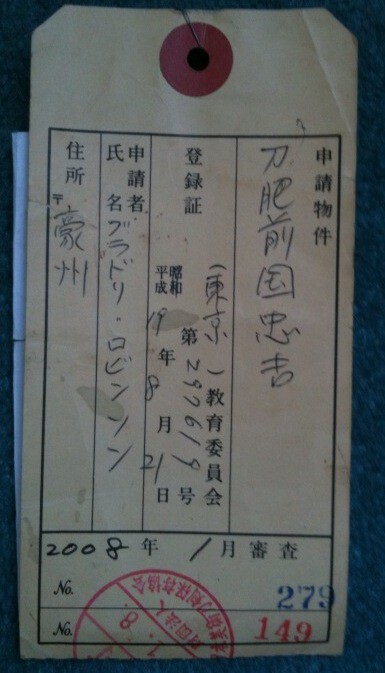 申請物件
刀肥前国忠吉
登録証
(東京)教育委員会
第297619号
昭和
平成
19年8月21日
申請者
氏名
ブラドリ・ロビンソン
住所
〒
豪州
2008年1月審査
No. 279
No. 149